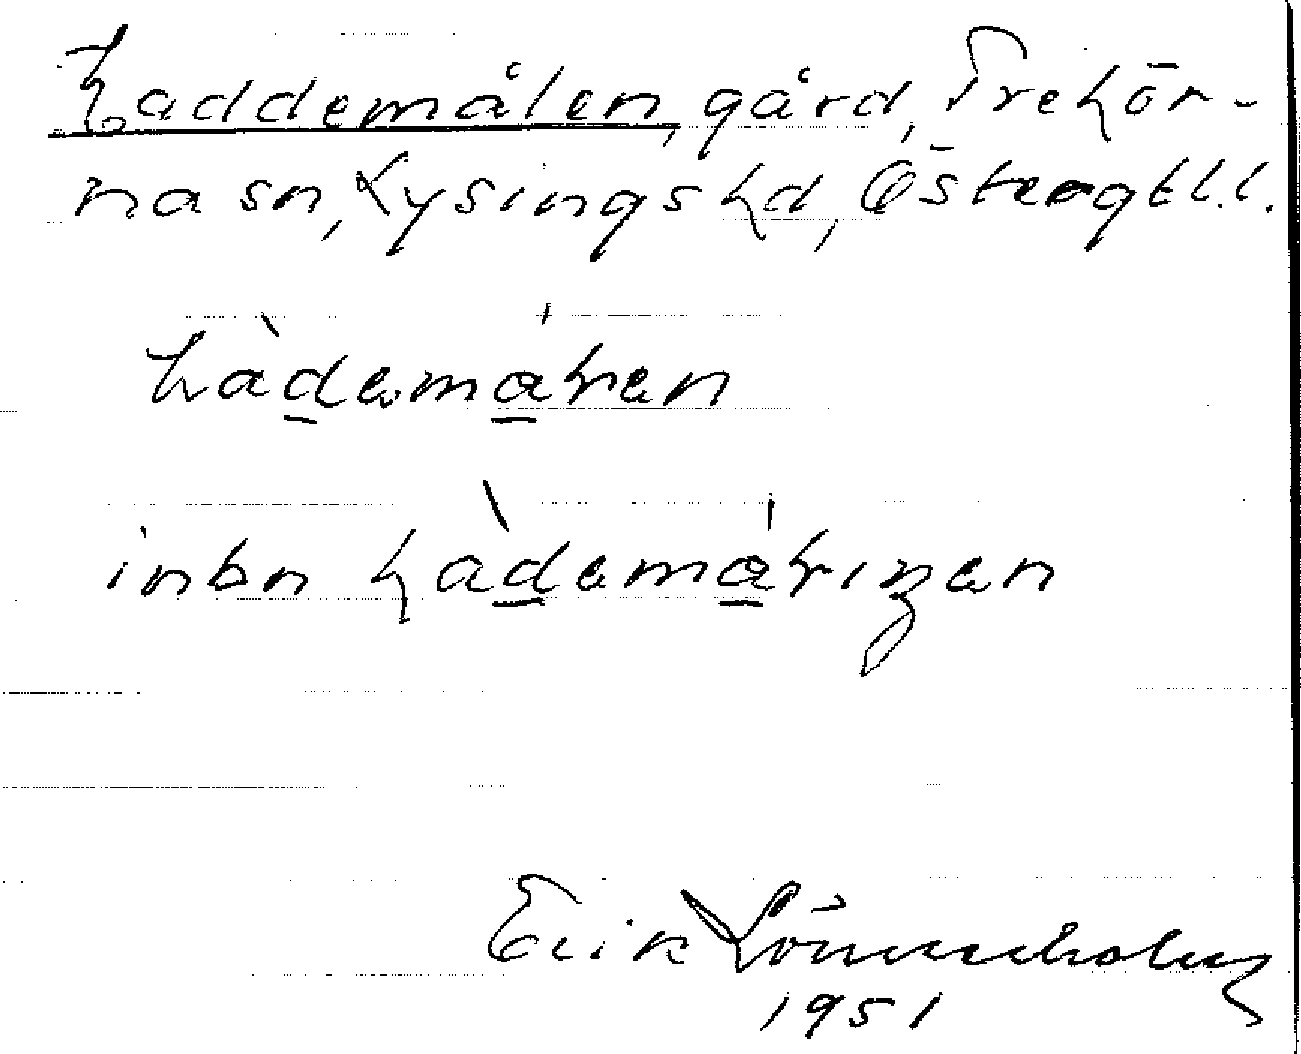 Laddemålen, gård, Trehör-
na sn, Lysings hd, Östergtl. l.
làdamåɫen
inbn làdamåɫiŋan
Erik Lönnerholm
1951